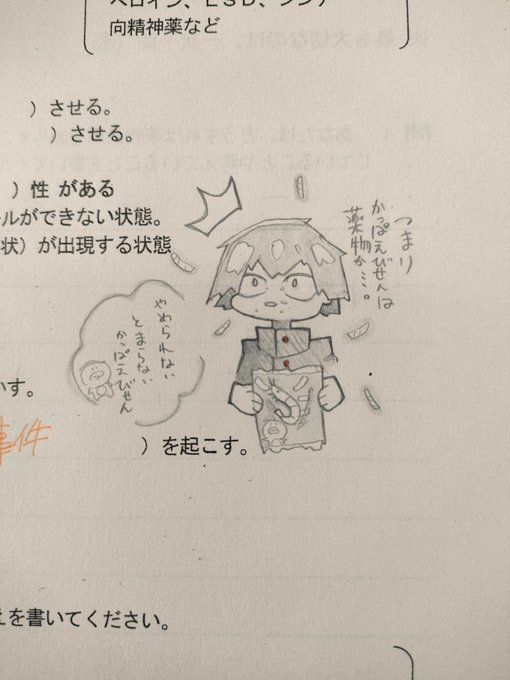 ヘロイン、LSD、シンナ
向精神薬など
)させる。
)させる。
)性 がある
ルができない状態。
状)が出現する状態
つまり
かっぱえびせんは
薬物か…。
やめられない
とまらない
かっぱえびせん
いす。
事件
)を起こす。
えを書いてください。